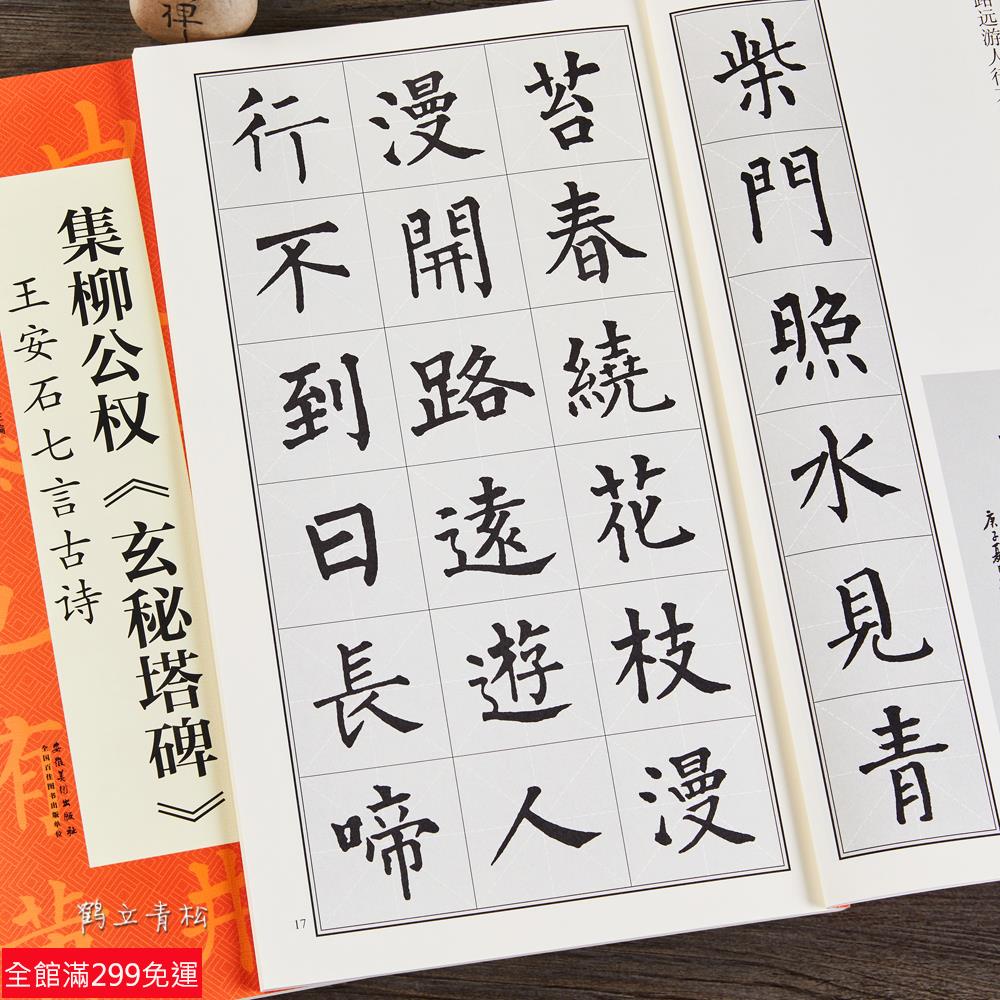 远游人行
柴門照水見青
苔春繞花枝漫
漫開路遠遊人
行不到日長啼
17
庚子夏
集柳公权《玄秘塔碑》
王安石七言古诗
安徽美术出版社
全国百佳图书出版单位
鹤立青松
全館滿299免運